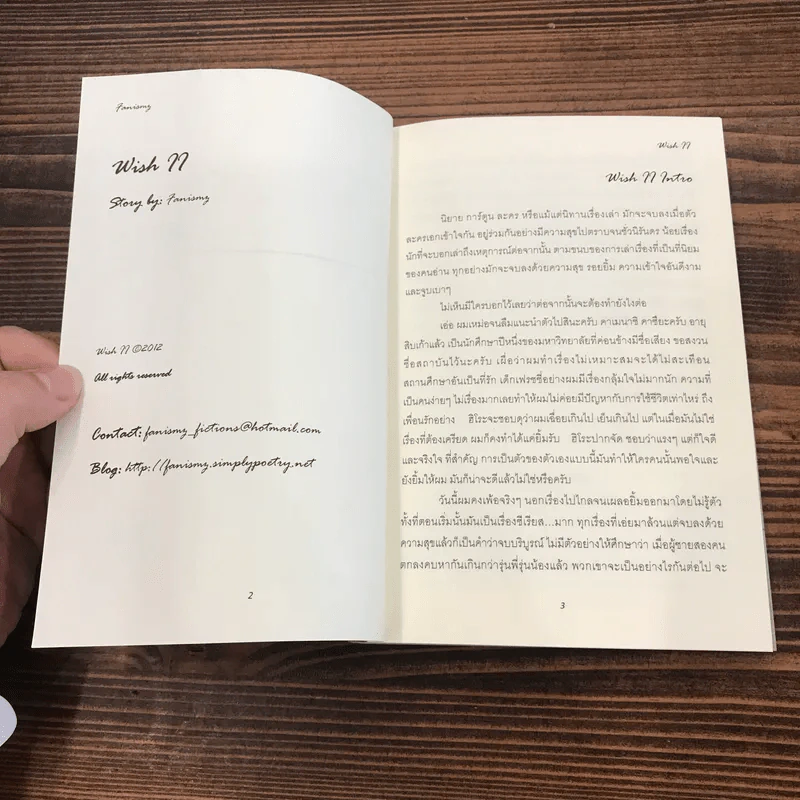 Fanismz
Wish II
Story by: Fanismz
Wish II ©2012
All rights reserved
Contact: fanismz_fictions@hotmail.com
Blog: http://fanismz.simplypoetry.net
2
Wish II
Wish II Intro
นิยาย การ์ตูน ละคร หรือแม้แต่นิทานเรื่องเล่า มักจะจบลงเมื่อตัว
ละครเอกเข้าใจกัน อยู่ร่วมกันอย่างมีความสุขไปตราบจนชั่วนิรันดร น้อยเรื่อง
นักที่จะบอกเล่าถึงเหตุการณ์ต่อจากนั้น ตามขนบของการเล่าเรื่องที่เป็นที่นิยม
ของคนอ่าน ทุกอย่างมักจะจบลงด้วยความสุข รอยยิ้ม ความเข้าใจอันดีงาม
และจูบเบาๆ
ไม่เห็นมีใครบอกไว้เลยว่าต่อจากนั้นจะต้องทำยังไงต่อ
เอ่อ ผมเหม่อจนลืมแนะนำตัวไปสินะครับ คาเมนาชิ คาซึยะครับ อายุ
สิบเก้าแล้ว เป็นนักศึกษาปีหนึ่งของมหาวิทยาลัยที่ค่อนข้างมีชื่อเสียง ขอสงวน
ชื่อสถาบันไว้นะครับ เผื่อว่าผมทำเรื่องไม่เหมาะสมจะได้ไม่สะเทือน
สถานศึกษาอันเป็นที่รัก เด็กเฟรชชี่อย่างผมมีเรื่องกลุ้มใจไม่มากนัก ความที่
เป็นคนง่ายๆ ไม่เรื่องมากเลยทำให้ผมไม่ค่อยมีปัญหากับการใช้ชีวิตเท่าไหร่ ถึง
เพื่อนรักอย่าง ฮิโระจะชอบดุว่าผมเฉื่อยเกินไป เย็นเกินไป แต่ในเมื่อมันไม่ใช่
เรื่องที่ต้องเครียด ผมก็คงทำได้แค่ยิ้มรับ ฮิโระปากจัด ชอบว่าแรงๆ แต่ก็ใจดี
และจริงใจ ที่สำคัญ การเป็นตัวของตัวเองแบบนี้มันทำให้ใครคนนั้นพอใจและ
ยังยิ้มให้ผม มันก็น่าจะดีแล้วไม่ใช่หรือครับ
วันนี้ผมคงเพ้อจริงๆ นอกเรื่องไปไกลจนเผลอยิ้มออกมาโดยไม่รู้ตัว
ทั้งที่ตอนเริ่มนั้นมันเป็นเรื่องซีเรียส...มาก ทุกเรื่องที่เอ่ยมาล้วนแต่จบลงด้วย
ความสุขแล้วก็เป็นคำว่าจบบริบูรณ์ ไม่มีตัวอย่างให้ศึกษาว่า เมื่อผู้ชายสองคน
ตกลงคบหากันเกินกว่ารุ่นพี่รุ่นน้องแล้ว พวกเขาจะเป็นอย่างไรกันต่อไป จะ
3